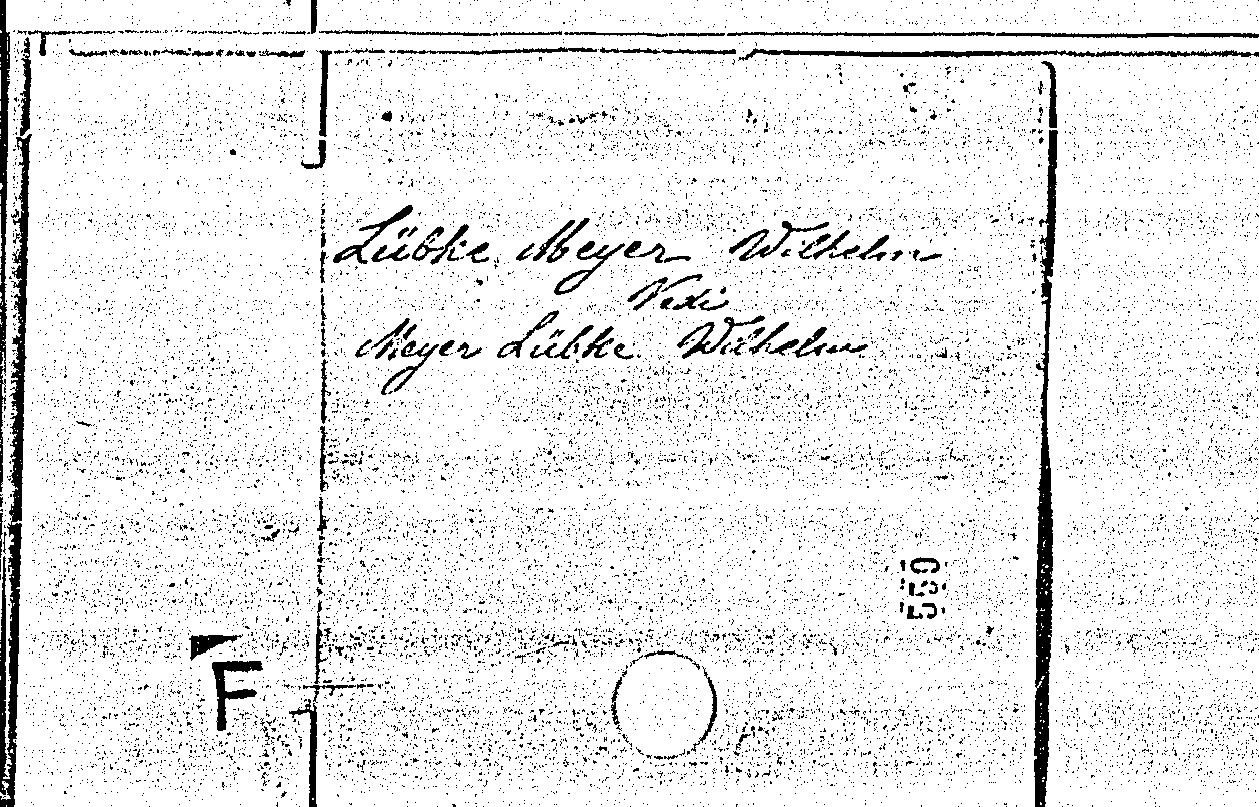 Lübke Meyer Wilhelm
Vedi
Meyer Lübke Wilhelm
559
F